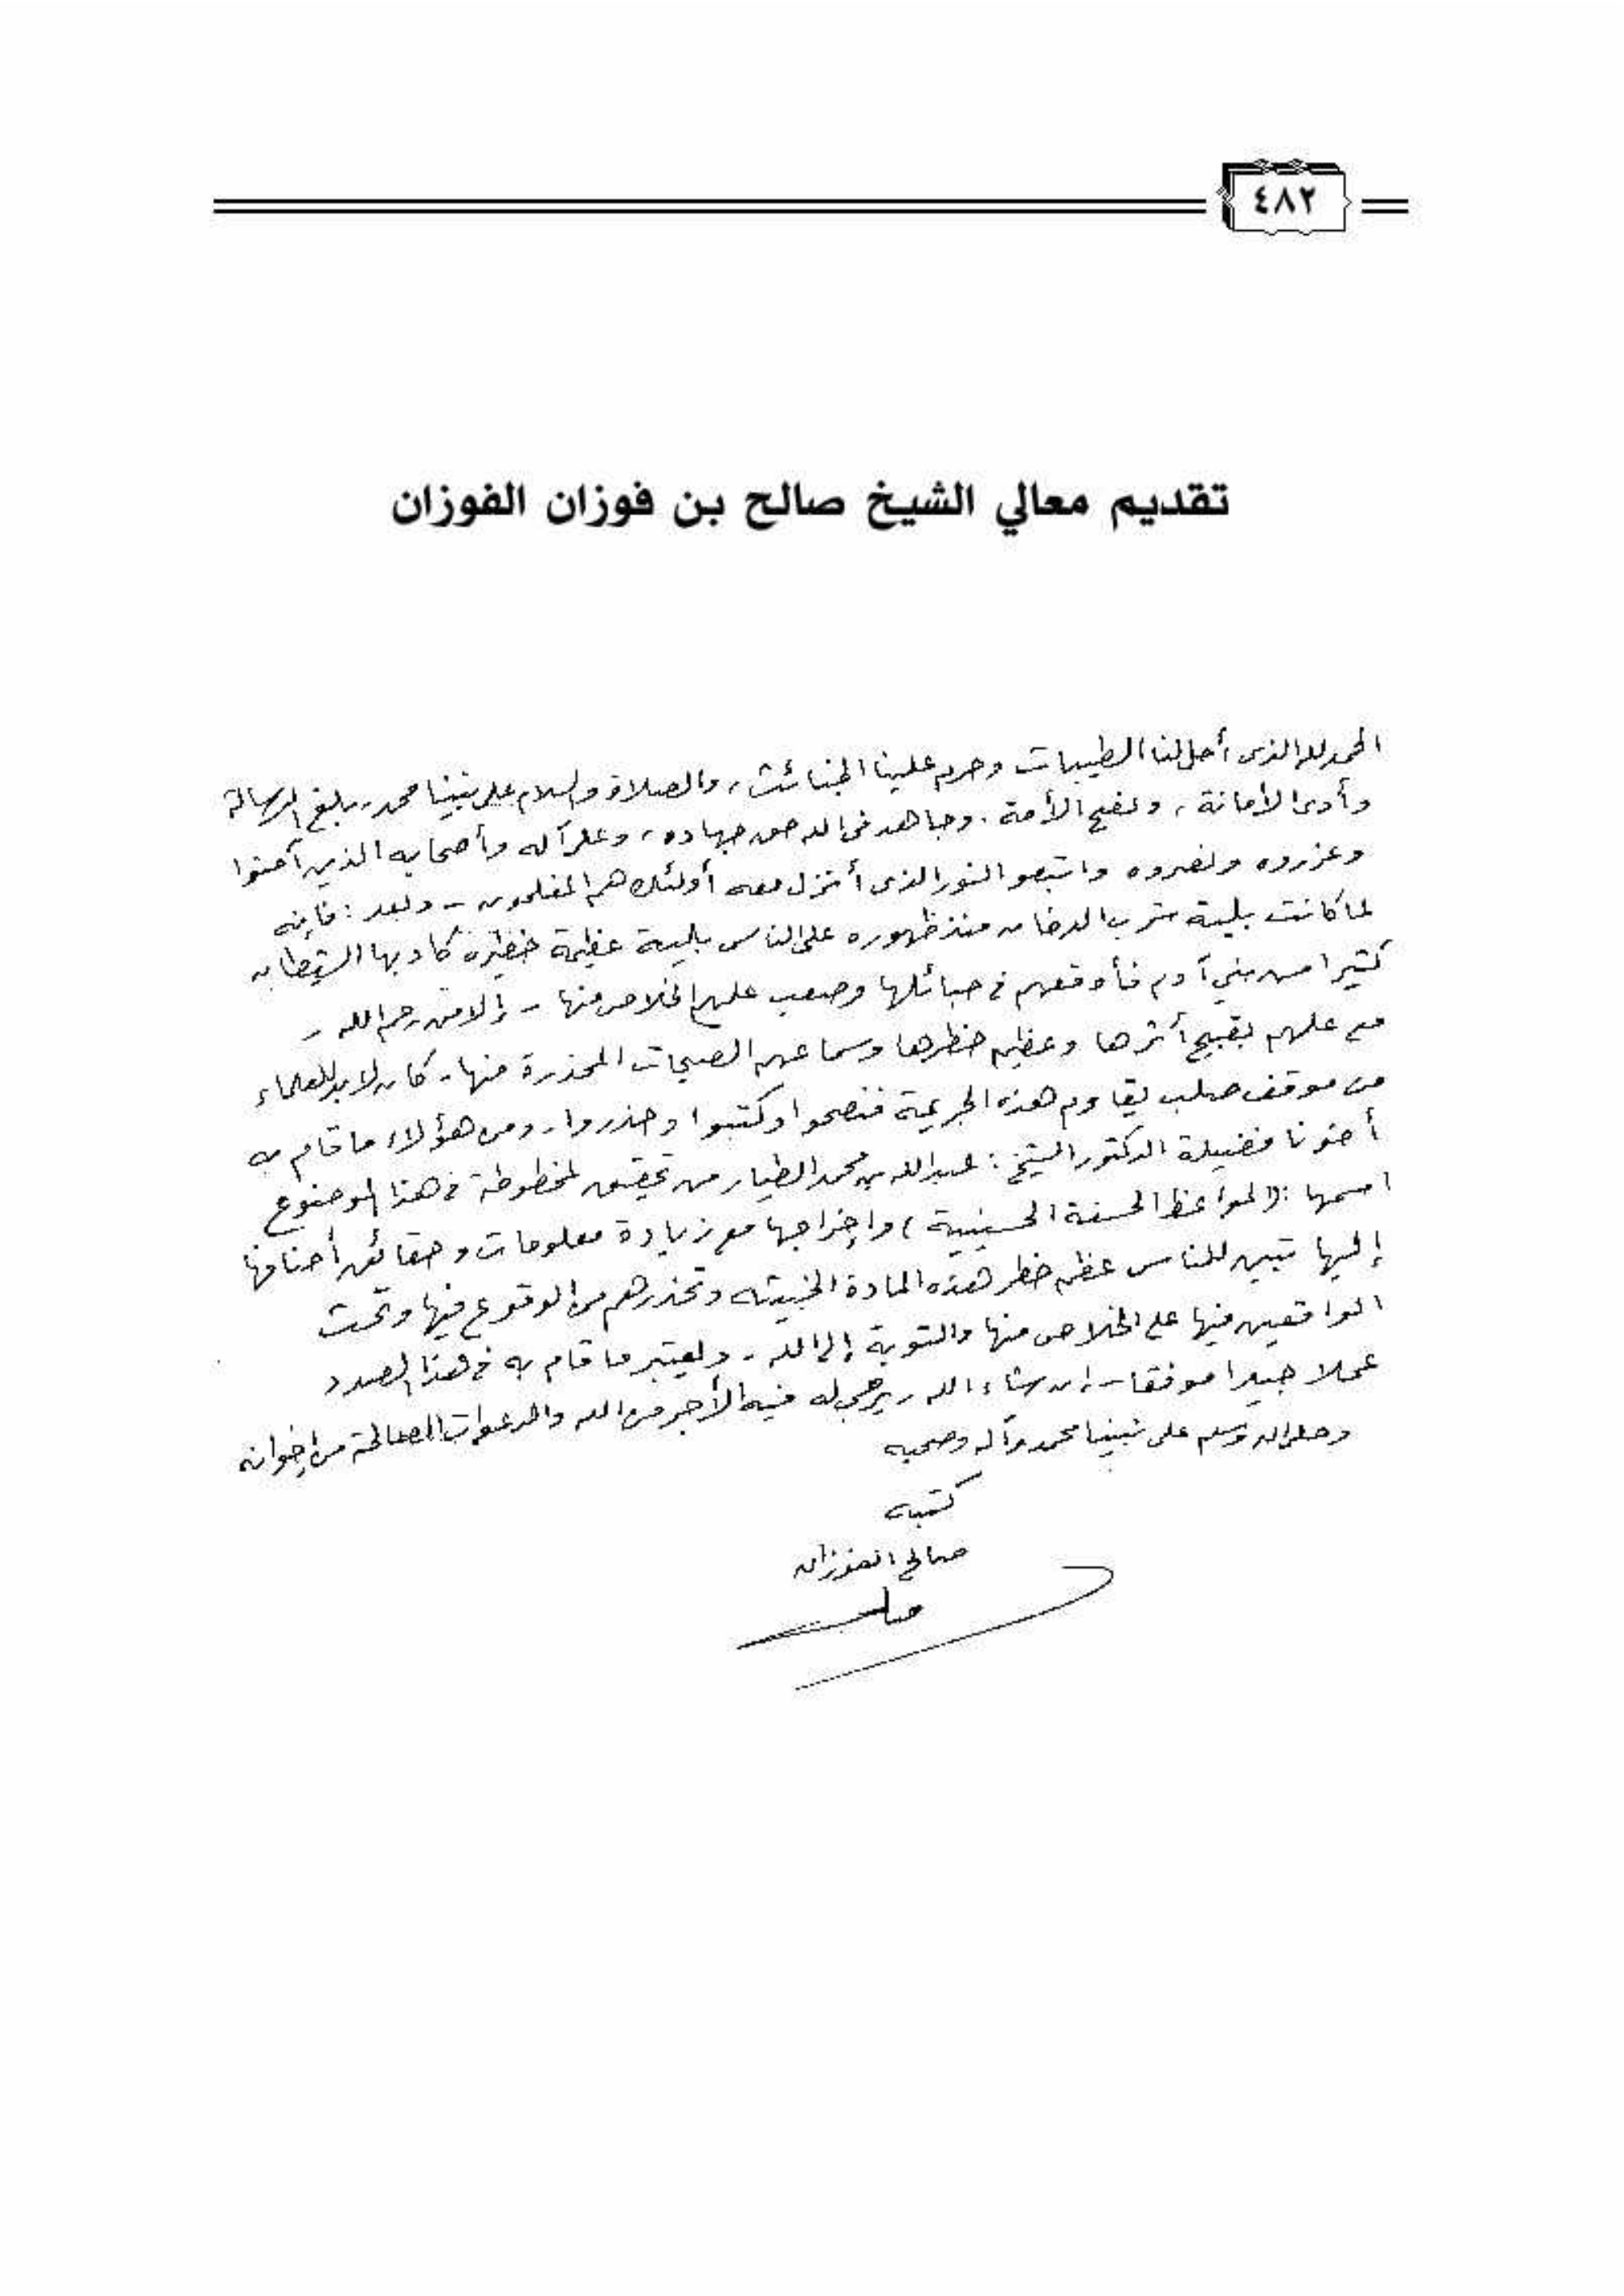 ٤٨٢
تقديم معالي الشيخ صالح بن فوزان الفوزان
الحمد لله الذى أحل لنا الطيبات وحرم علينا الخبائث، والصلاة والسلام على نبينا محمد، بلغ الرسالة
وأدى الأمانة، ونصح الأمة. وجاهد فى الله حق جهاده، وعلى آله وأصحابه الذين آمنوا
وعزروه ونصروه واتبعو النور الذى أنزل معه أولئك هم المفلحون - وبعد: فإنه
لما كانت بلية شرب الدخان منذ ظهوره على الناس بلية عظيمة خطيرة كاد بها الشيطان
كثيرا من بني آدم فأوقعهم في حبائلها وصعب عليهم الخلاص منها - إلا من رحم الله -
مع علمهم بقبيح أثرها وعظيم خطرها وسماعهم الصيحات المحذرة منها - كان لابد للعلماء
من موقف صلب يقاوم هذه الجريمة فنصحوا وكتبوا وحذروا - ومن هؤلاء ما قام به
أخونا فضيلة الدكتور الشيخ: عبدالله بن محمد الطيار من تحقيق لمخطوطة في هذا الموضوع
اسمها: (المواعظ الحسنة الحسينية) وإخراجها مع زيادة معلومات وحقائق أضافها
إليها تبين للناس عظم خطر هذه المادة الخبيثه وتحذرهم من الوقوع فيها وتحث
الواقعين فيها على الخلاص منها والتوبة إلى الله - ويعتبر ما قام به في هذا الصدد
عملا جيدا موفقا - إن شاء الله - يرجى له فيه الأجر من الله والدعوات الصالحة من إخوانه
وصلى الله وسلم على نبينا محمد وآله وصحبه
كتبه
صالح الفوزان